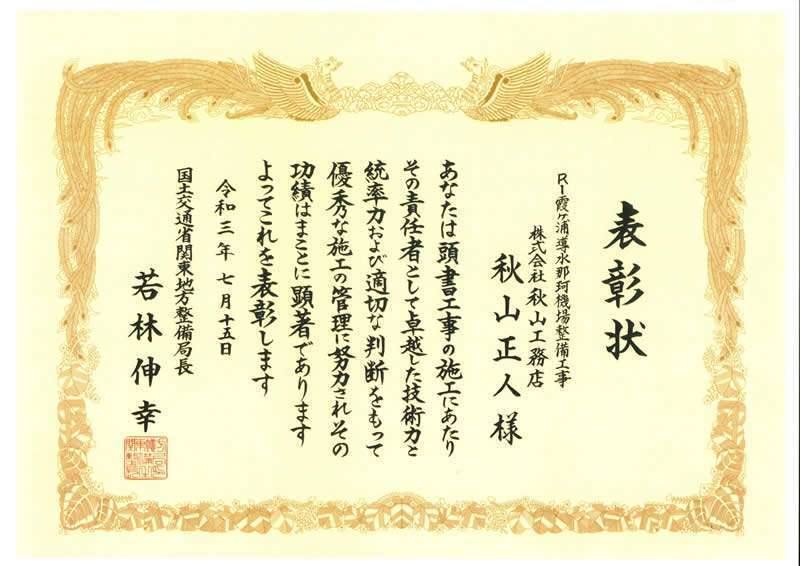 表彰状
R1霞ヶ浦導水那珂機場整備工事
株式会社 秋山工務店
秋山正人様
あなたは頭書工事の施工にあたり
その責任者として卓越した技術力と
統率力および適切な判断をもって
優秀な施工の管理に努力されその
功績はまことに顕著であります
よってこれを表彰します
令和三年七月十五日
国土交通省関東地方整備局長
若林伸幸